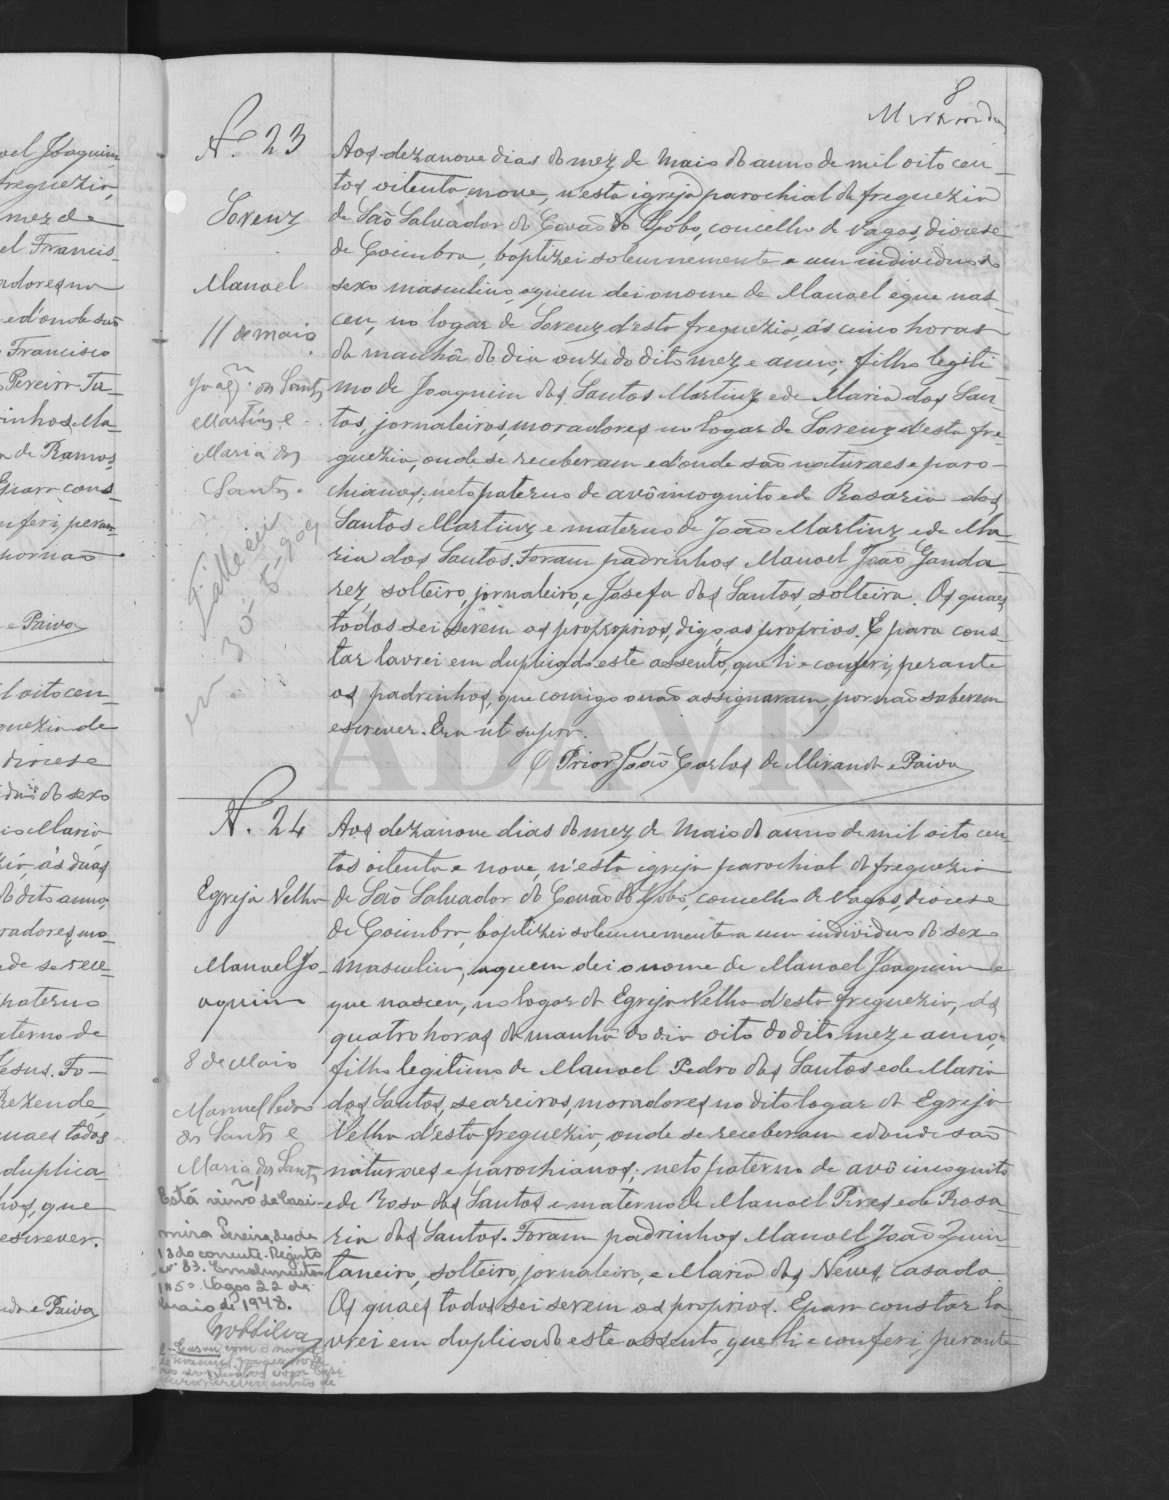 8
Miranda
N.º 23
Lorenz
Manoel
11 de maio
Joaqm. dos Santos
Martinz e
Maria dos
Santos.
Falleceu
30-5-909
Aos dezanove dias do mez de Maio do anno de mil oito cen-
tos oitenta nove, n'esta igreja parochial da freguezia
de São Salvador do Covão do Lobo, concelho de Vagos, diocese
de Coimbra, baptizei solemnemente a um individuo do
sexo masculino, aquem dei o nome de Manoel e que nas-
ceu, no logar de Lorenz d'esta freguezia, ás cinco horas
da manhã do dia onze do dito mez e anno; filho legiti-
mo de Joaquim dos Santos Martinz e de Maria dos San-
tos, jornaleiros, moradores no logar de Lorenz d'esta fre-
guezia, onde se receberam e d'onde são naturaes e paro-
chianos; neto paterno de avô incognito e de Rosaria dos
Santos Martinz e materno de João Martinz e de Ma-
ria dos Santos. Foram padrinhos Manoel João Ganda-
rez solteiro, jornaleiro, e Josefa dos Santos, solteira. Os quaes
todos sei serem os propoprios, digo, os proprios. E para cons-
tar lavrei em duplicado este assento, que li e conferi, perante
os padrinhos, que comigo o não assignaram, por não saberem
escrever. Era ut supra.
O Prior João Carlos de Miranda e Paiva
N.º 24
Egreja Velha
Manoel Jo-
aquim
8 de Maio
Manuel Pedro
dos Santos e
Maria dos Santos
Está viuvo de Casi-
mira Pereira, desde
13 do corrente. Registo
n.º 83. Emolumentos
1\$50. Vagos 22 de
Maio de 1948.
Casou com
Aos dezanove dias do mez de Maio do anno de mil oito cen-
tos oitenta e nove, n'esta igreja parochial da freguezia
de São Salvador do Covão do Lobo, concelho de Vagos, diocese
de Coimbra, baptizei solemnemente a um individuo do sexo
masculino, aquem dei o nome de Manoel Joaquim e
que nasceu, no logar da Egreja Velha d'esta freguezia, ás
quatro horas da manhã do dia oito do dito mez e anno,
filho legitimo de Manoel Pedro dos Santos e de Maria
dos Santos, seareiros, moradores no dito logar da Egreja
Velha d'esta freguezia, onde se receberam e donde são
naturaes e parochianos; neto paterno de avô incognito
e de Rosa dos Santos e materno de Manoel Pires e de Rosa-
ria dos Santos. Foram padrinhos Manoel João Quin-
taneiro, solteiro, jornaleiro, e Maria das Neves, casada
Os quaes todos sei serem os proprios. E para constar la-
vrei em duplicado este assento, que li e conferi, perante
ADAVR
oel Joaquim
freguezia
mez de
el Francis-
adores, na
e d'onde são
Francisco
Pereira Ta-
rinhos, Ma-
de Ramos,
nferi, peran-
por não
e Paiva
l oito cen-
guezia de
diocese
duo do sexo
Maria
ás duas
do dito anno,
radores, no
de se rece-
paterno
aterno de
Jesus. Fo-
Rezende,
uaes todos
duplica-
hos, que
escrever.
e Paiva